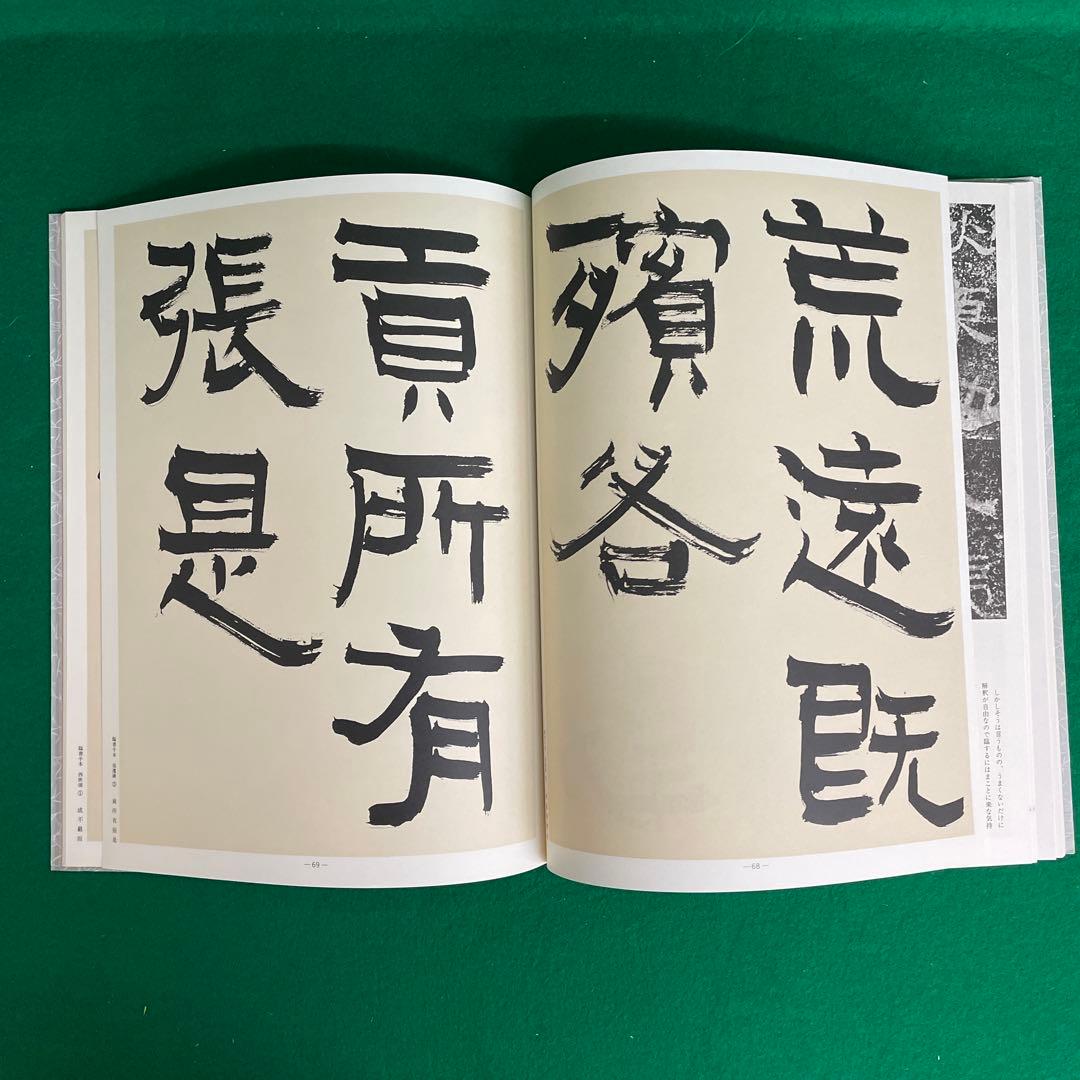 しかしそうは言うものの、うまくないだけに
解釈が自由なので臨するにはまことに楽な気持
荒遠既
殯各
—68—
貢所有
張是
臨書手本 張遷碑 ③ 貢所有張是
—69—
臨書手本 西狭頌 ① 成不嚴而